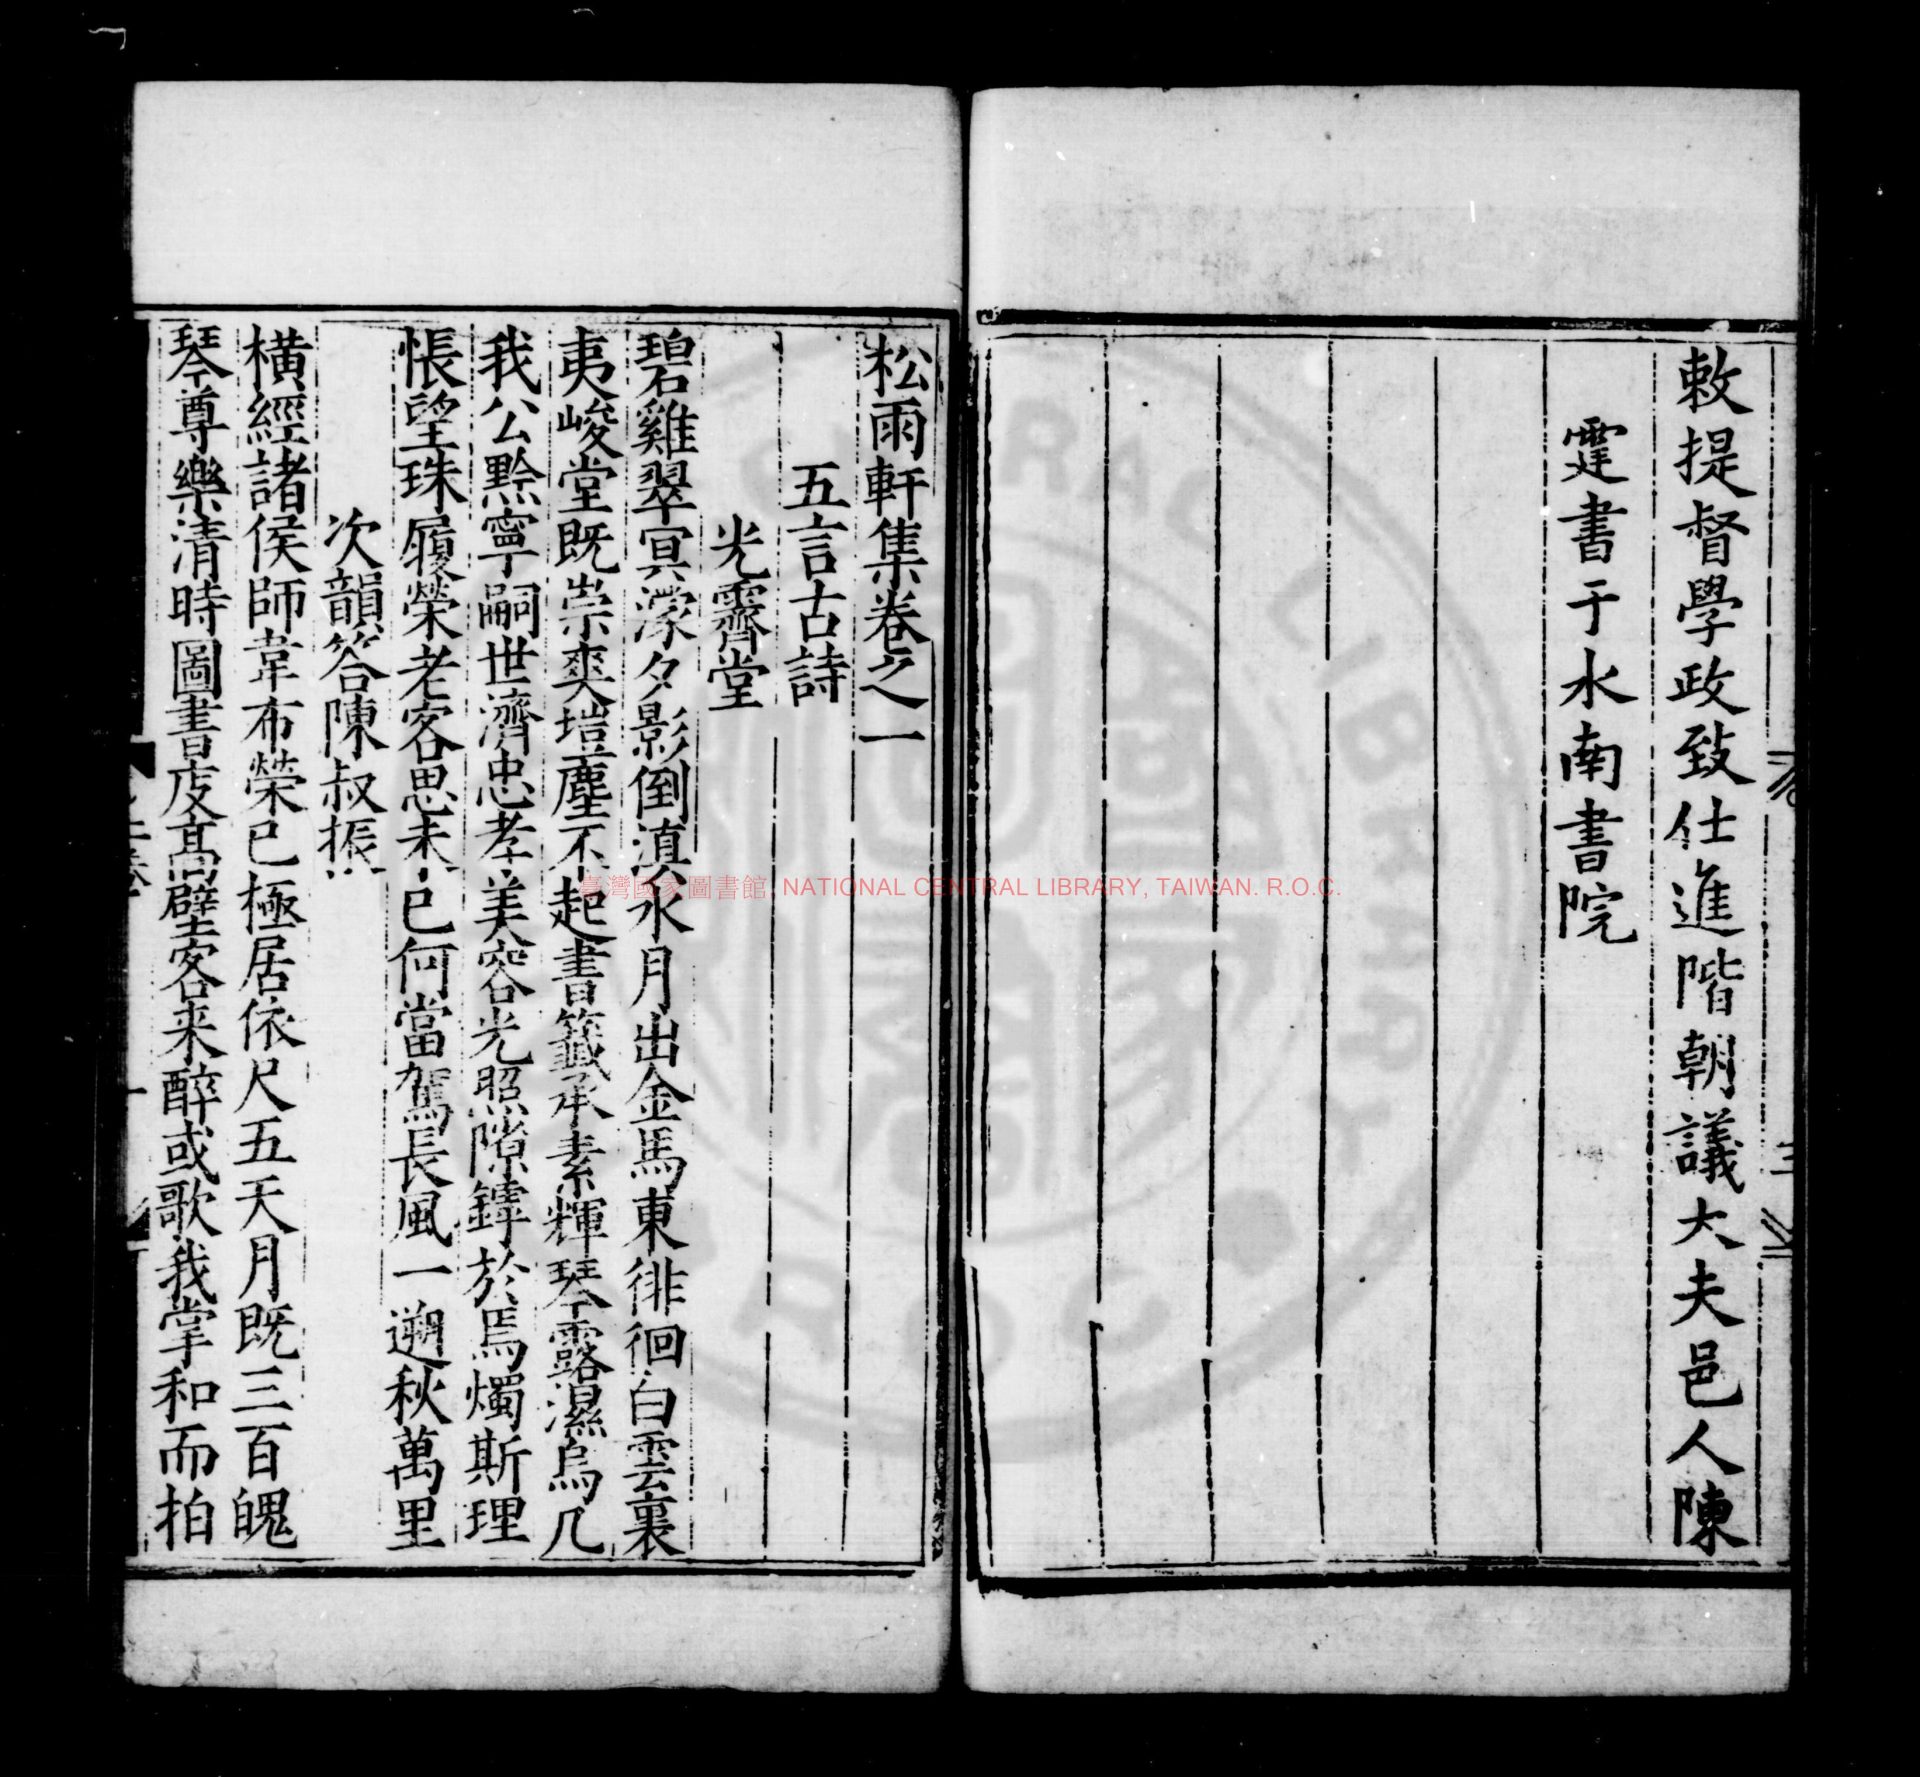 敕提督學政致仕進階朝議大夫邑人陳
霆書于水南書院
松雨軒集卷之一
五言古詩
光霽堂
碧雞翠冥濛夕影倒滇水月出金馬東徘徊白雲裏
夷峻堂既崇爽塏塵不起書籤承素輝琴露濕烏几
我公黔寧嗣世濟忠孝美容光照隙鏬於焉燭斯理
悵望珠履榮老客思未已何當駕長風一遡秋萬里
次韻答陳叔振
橫經諸侯師韋布榮已極居依尺五天月既三百餽
琴尊樂清時圖書庋高壁客来醉或歌我掌和而拍
臺灣國家圖書館, NATIONAL CENTRAL LIBRARY, TAIWAN. R.O.C.